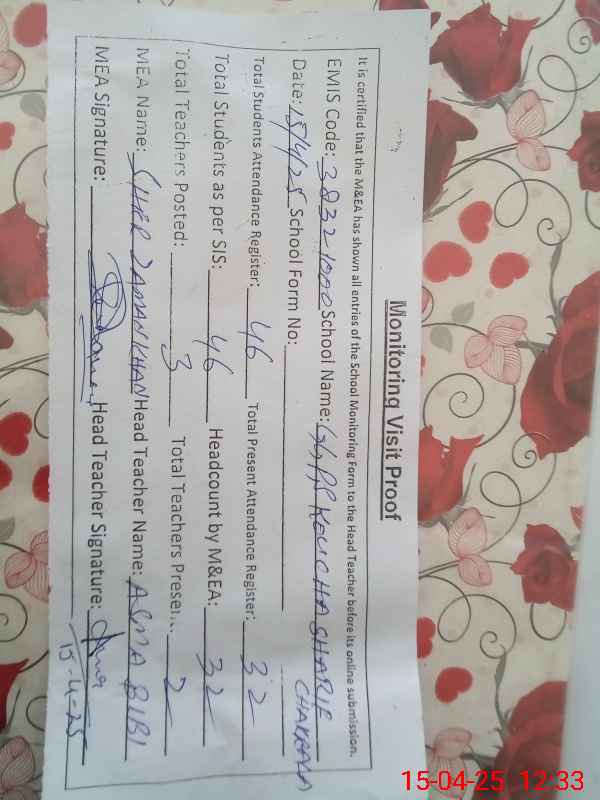 Monitoring Visit Proof
It is certified that the M&EA has shown all entries of the School Monitoring Form to the Head Teacher before its online submission.
EMIS Code: School Name: KOUCHA SHARIF
Date: 15/4/25 School Form No:
Total Students Attendance Register: 46 Total Present Attendance Register: 32
Total Students as per SIS: 46 Headcount by M&EA: 32
Total Teachers Posted: 3 Total Teachers Presen... 2
MEA Name: SHER ZAMAN KHAN Head Teacher Name: ASMA BIBI
MEA Signature: Head Teacher Signature:
15-4-25
15-04-25 12:33